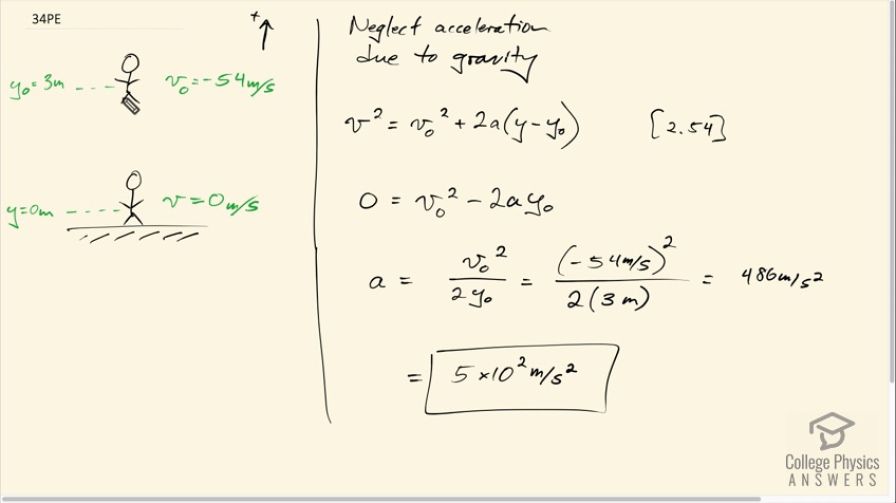 34PE
+
y₀ = 3m --- v₀ = -54 m/s
y = 0m ---- v = 0 m/s
Neglect acceleration
due to gravity
v² = v₀² + 2a(y - y₀) [2.54]
0 = v₀² - 2a y₀
a = v₀² / 2y₀ = (-54 m/s)² / 2(3 m) = 486 m/s²
= 5 × 10² m/s²
College Physics
ANSWERS